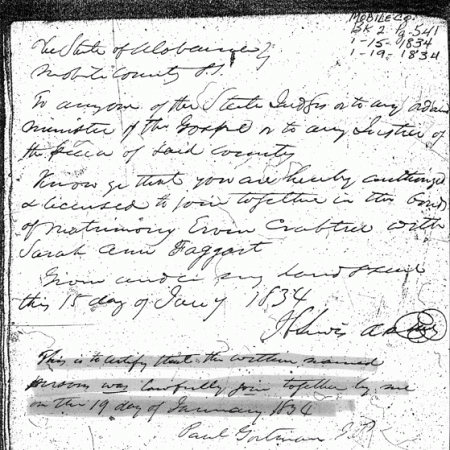 MOBILE CO.
BK 2 Pg-541
1-15-1834
1-19-1834
The State of Alabama
Mobile County
To anyone of the State Judges or to any ordained
minister of the Gospel or to any Justice of
the peace of said County
Know ye that you are hereby authorized
& licensed to join together in the bond
of matrimony Ervin Crabtree with
Sarah Ann Faggart
Given under my hand & seal
this 15 day of Jany 1834
This is to certify that the within named
persons was lawfully join together by me
on the 19 day of January 1834
Paul Gortman J.P.